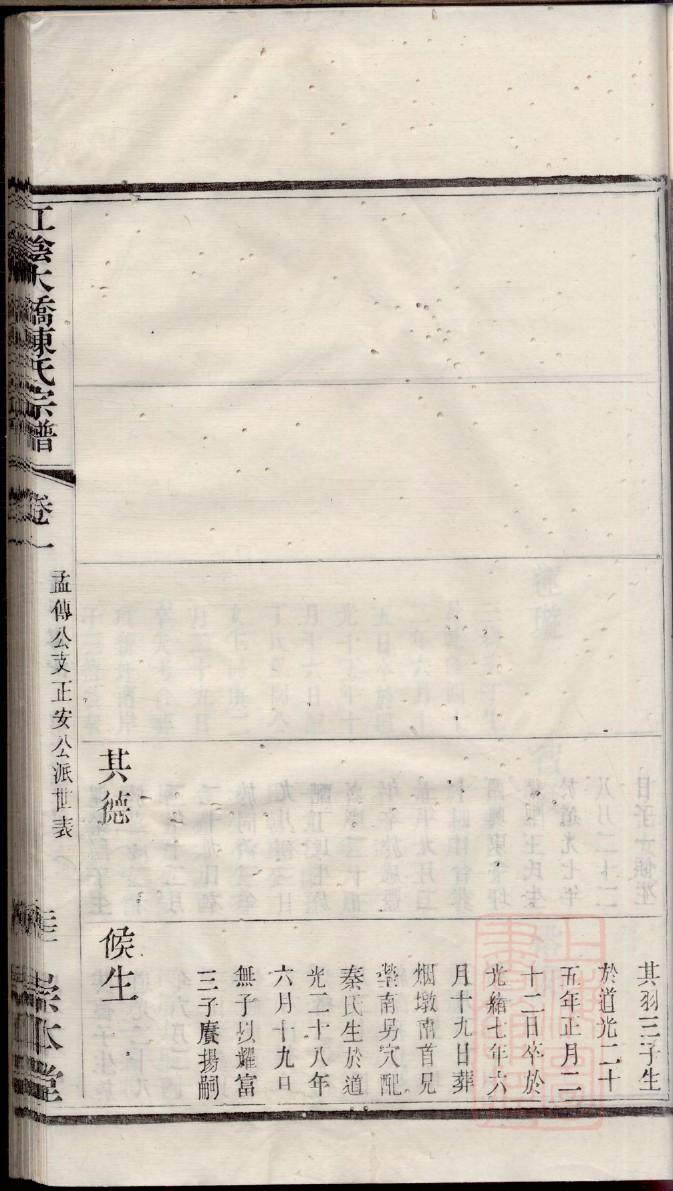 其羽三子生
於道光二十
五年正月二
十二日卒於
光緒七年六
月十九日葬
烟墩南首兄
塋南另穴配
秦氏生於道
光二十八年
六月十九日
無子以耀富
三子賡揚嗣
候生
其德
孟傳公支正安公派世表
江陰大橋陳氏宗譜
卷一
崇本堂